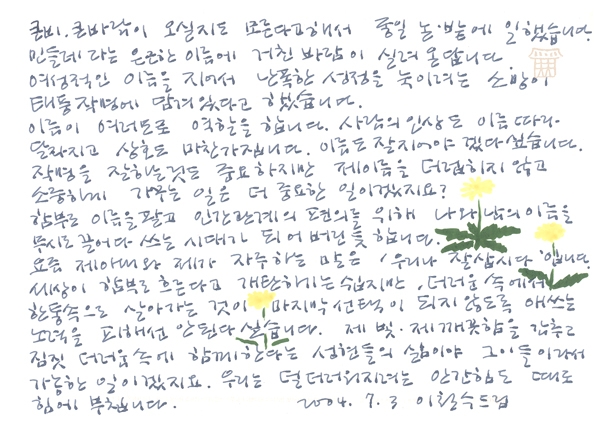 큰비. 큰바람이 오실지도 모른다고해서 종일 논·밭에 일했습니다.
민들레라는 은근한 이름에 거친 바람이 실려 온답니다.
여성적인 이름을 지어서 난폭한 성정을 눅이려는 소망이
태풍작명에 담겨있다고 했습니다.
이름이 여러모로 역할을 합니다. 사람의 인상도 이름따라
달라지고 상호도 마찬가집니다. 이름도 잘지어야 겠다 싶습니다.
작명을 잘하는것도 중요하지만 제이름을 더럽히지 않고
소중하게 가꾸는 일은 더 중요한 일이겠지요?
함부로 이름을 팔고 인간관계의 편의를 위해 나와 남의이름을
무시로 끌어다 쓰는 시대가 되어버린 듯 합니다.
요즘 제아내와 제가 자주하는 말은 '우리나 잘삽시다' 입니다.
세상이 함부로 흐른다고 개탄하기는 쉽지만, 더러운 속에서
한통속으로 살아가는 것이 마지막선택이 되지 않도록 애쓰는
노력을 피해선 안된다 싶습니다. 제 빛·제깨끗함을 감추고
짐짓 더러움속에 함께한다는 성현들의 삶이야 그이들이라서
가능한 일이겠지요. 우리는 덜더러워지려는 안간힘도 때로
힘에 부칩니다.
2004. 7. 3 이철수드림